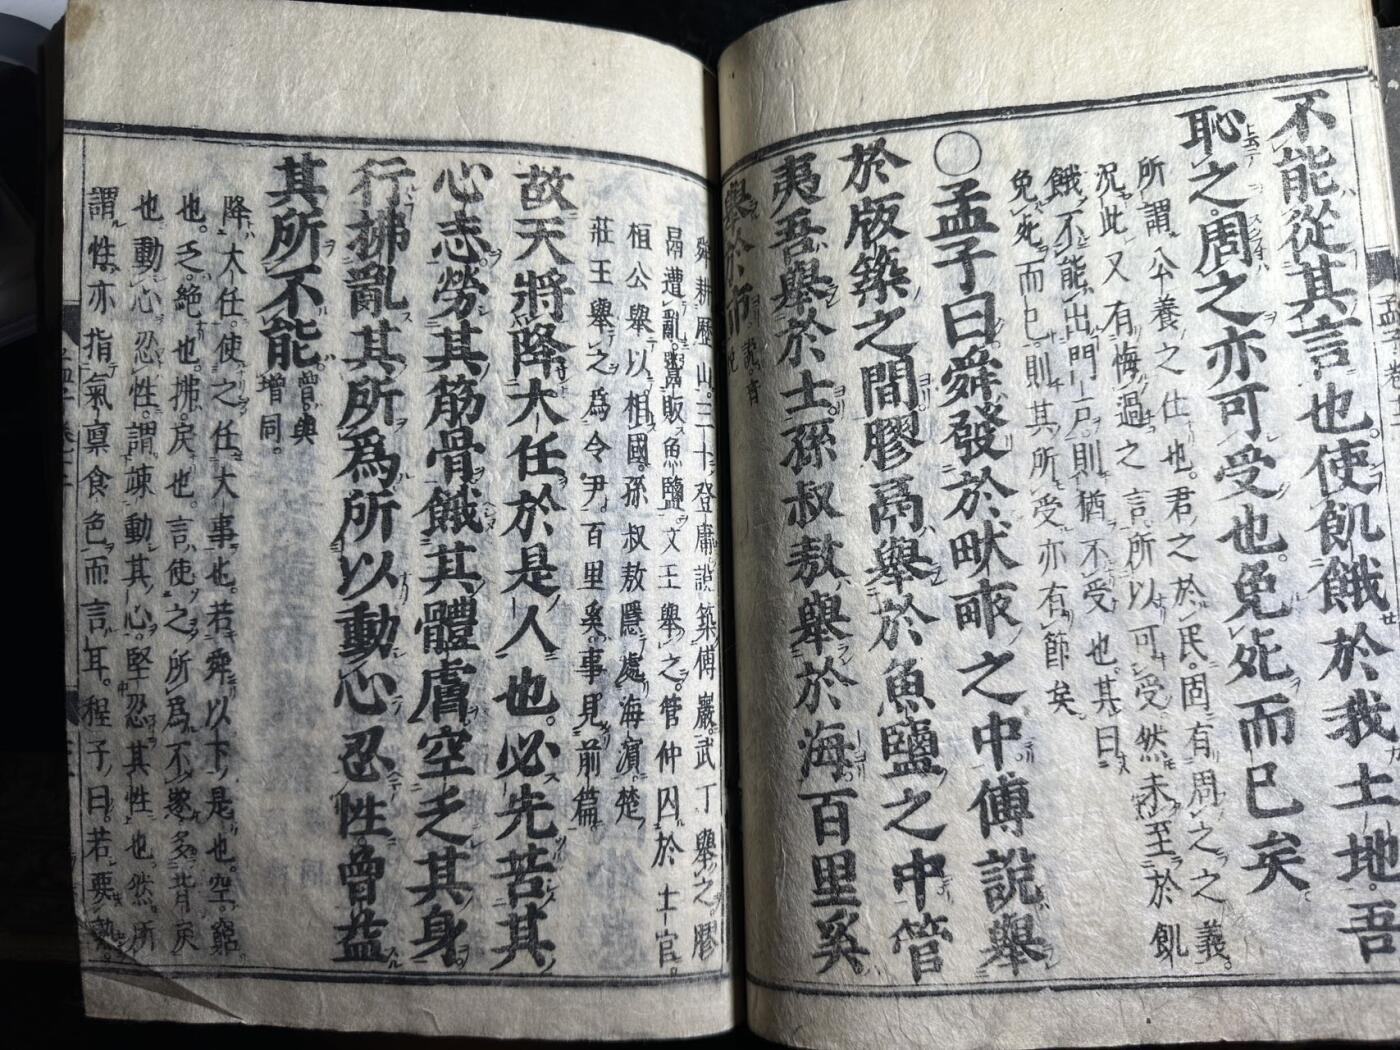 不能從其言也使飢餓於我土地吾
恥之周之亦可受也免死而已矣
所謂公養之仕也君之於民固有周之之義
況此又有悔過之言所以可受然未至於飢
餓不能出門戶則猶不受也其曰
免死而已則其所受亦有節矣
○孟子曰舜發於畎畝之中傅說舉
於版築之間膠鬲舉於魚鹽之中管
夷吾舉於士孫叔敖舉於海百里奚
舉於市
說音
悅
舜耕歷山三十登庸說築傅巖武丁舉之膠
鬲遭亂鬻販魚鹽文王舉之管仲囚於士官
桓公舉以相國孫叔敖隱處海濱楚
莊王舉之為令尹百里奚事見前篇
故天將降大任於是人也必先苦其
心志勞其筋骨餓其體膚空乏其身
行拂亂其所為所以動心忍性曾益
其所不能
曾與
增同
降大任使之任大事也若舜以下是也空窮
也乏絕也拂戾也言使之所為不遂多背戾
也動心忍性謂竦動其心堅忍其性也然所
謂性亦指氣稟食色而言耳程子曰若要熟